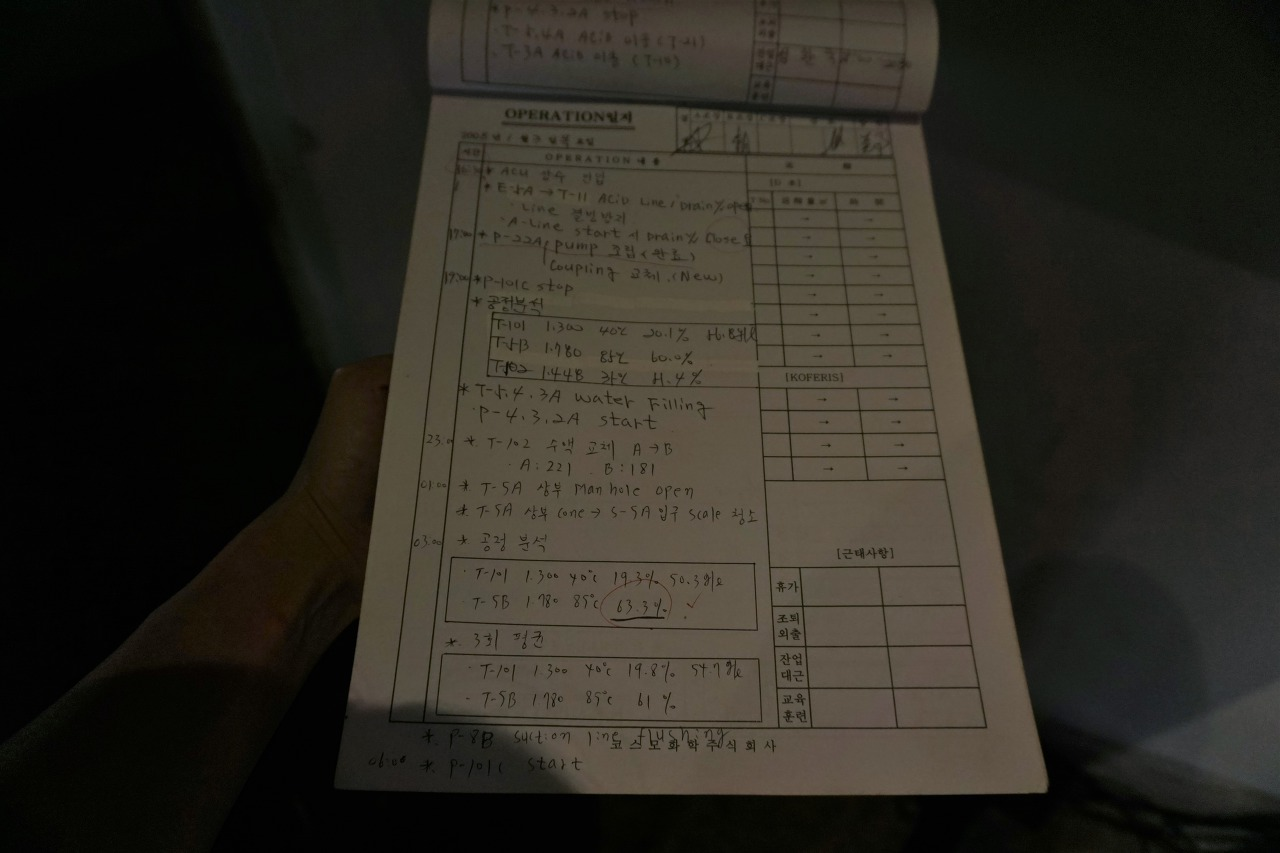 *P-4.3.2A stop
·T-5.4A ACiD 이송 (T-21)
·T-3A ACiD 이송 (T-19)
OPERATION일지
시간 OPERATION 내 용
* E-5A → T-11 ACiD Line / Drain
· Line
· A-Line start 시 Drain Close
* P-22A pump 조립 (완료)
Coupling 교체. (New)
19:00 *P-101C stop
* 공정분석
T-101 1.300 40℃ 20.1%
T-5B 1.780 85℃ 60.0%
T-102 1.448 41.4%
[KOFERIS]
* T-5.4.3A water Filling
·P-4.3.2A start
23:0 * T-102 수액 교체 A → B
· A: 221 . B: 181
01:00 * T-5A 상부 Manhole open
* T-5A 상부 Cone → S-5A 입구 Scale 청소
03:00 * 공정 분석
· T-101 1.300 40℃ 19.3% 50.3g/l
· T-5B 1.780 85℃ 63.3% ✓
* 3회 평균
· T-101 1.300 40℃ 19.8% 54.7g/l
- T-5B 1.780 85℃ 61%
[근태사항]
휴가
조퇴
외출
잔업
대근
교육
훈련
* P-8B suction line flushing
코스모화학주식회사
06:00 * P-101C start